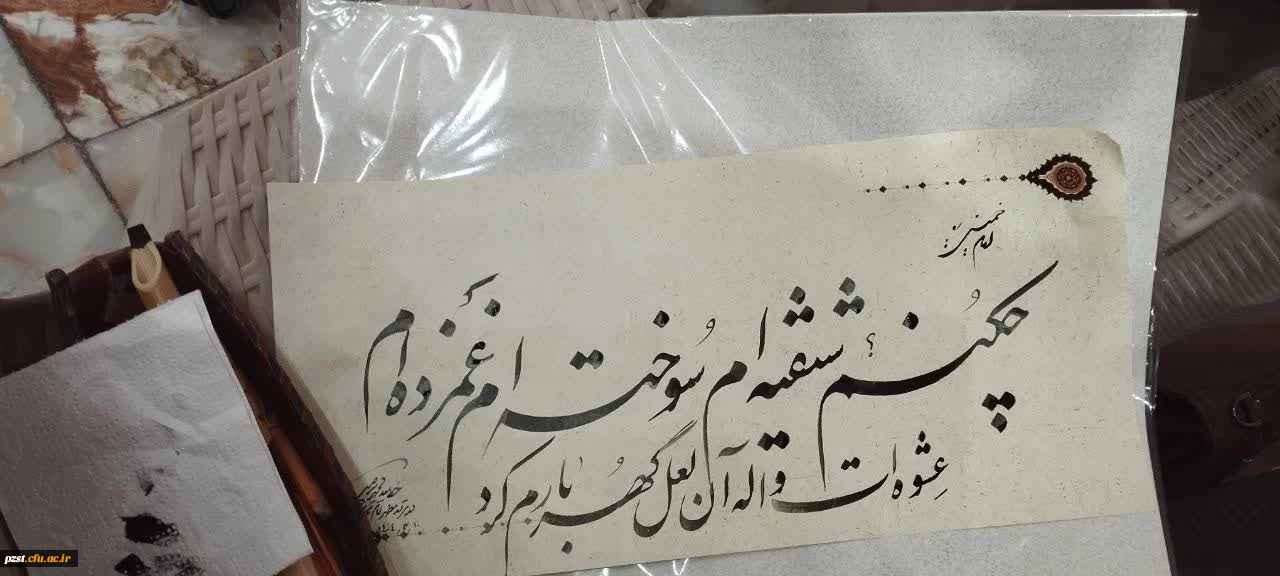 امام خمینی
چکنم؟ شیفته ام سوخته ام غمزده ام
عشوه ات واله آن لعل گهربارم کرد
pzst.cfu.ac.ir